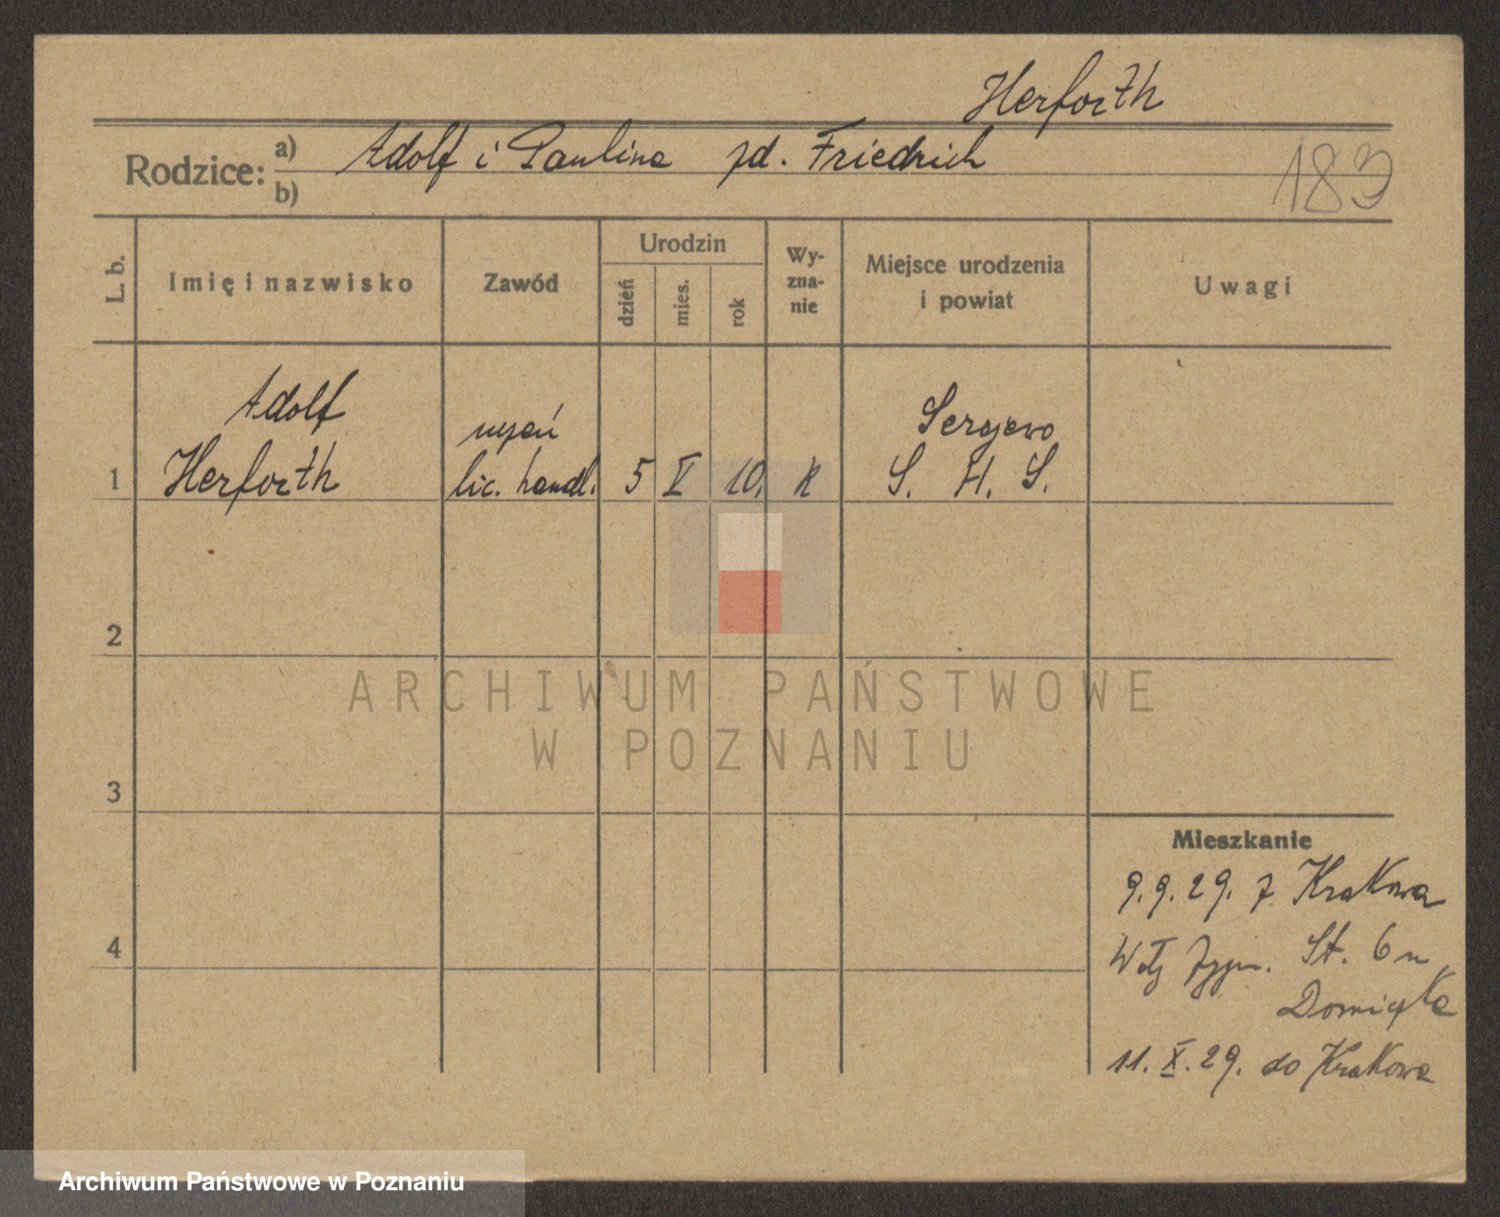 Herforth
Rodzice: a) Adolf i Paulina zd. Friedrich
b)
183
L. b.
Imię i nazwisko
Zawód
Urodzin
dzień
mies.
rok
Wy-
zna-
nie
Miejsce urodzenia
i powiat
Uwagi
Adolf
uczeń
Serajewo
1 Herforth lic. handl. 5 V 10. k S. H. S.
2
3
4
ARCHIWUM PAŃSTWOWE
W POZNANIU
Mieszkanie
9.9.29. z Krakowa
Zygm. St. 6 u
11. X. 29. do Krakowa
Archiwum Państwowe w Poznaniu